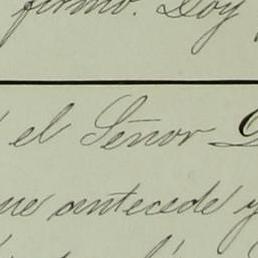 firmo. Doy
el Señor
que antecede y